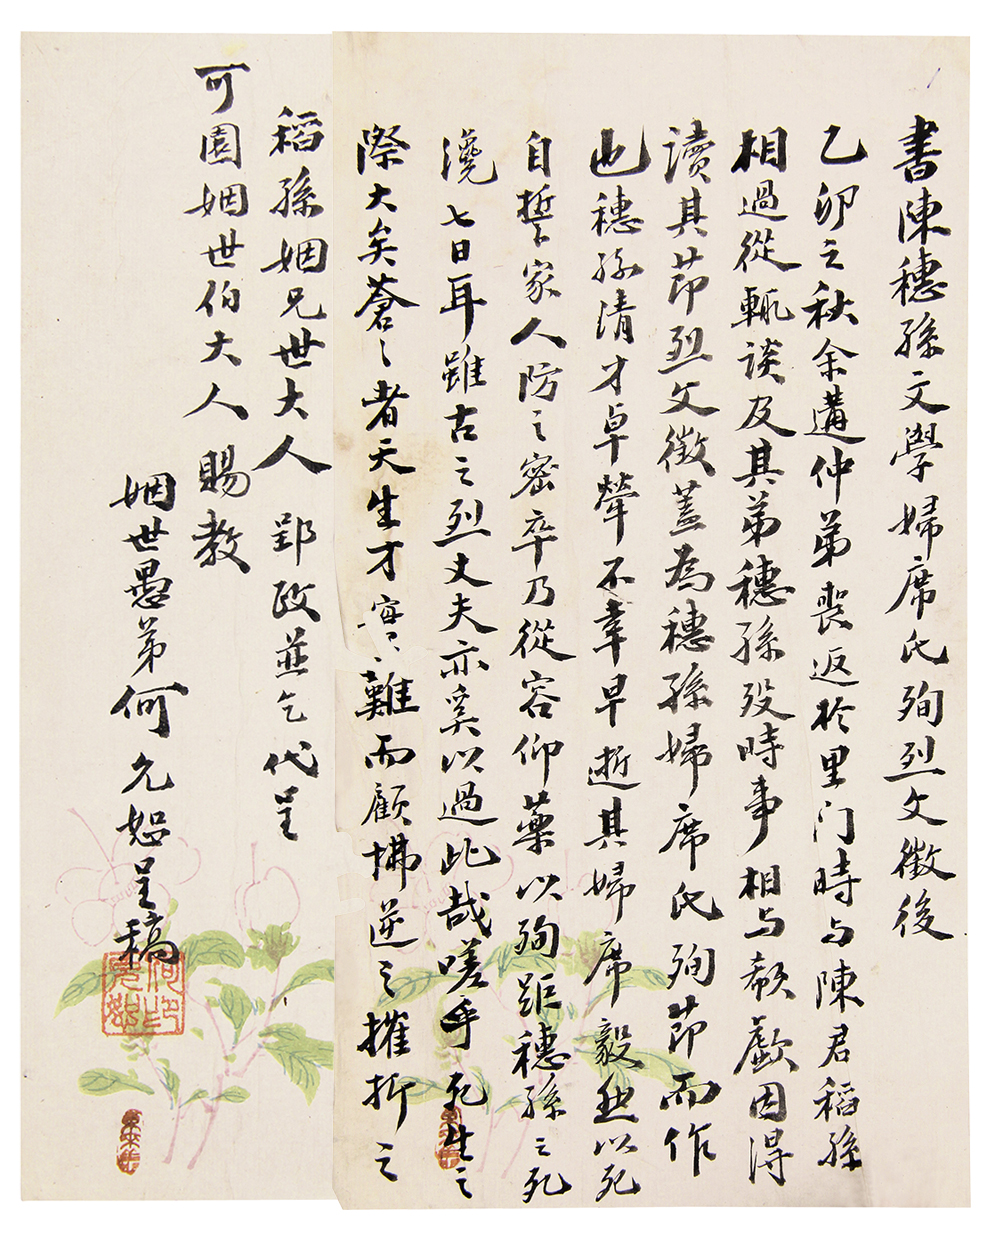 書陳穗孫文學婦席氏殉烈文徵後
乙卯之秋余遘仲弟喪返於里门時与陳君稻孫
相過從輒談及其弟穗孫歿時事相与欷歔因得
讀其茆烈文徵蓋為穗孫婦席氏殉茆而作
也穗孫清才卓犖不幸早逝其婦席毅然以死
自誓家人防之密卒乃從容仰藥以殉距穗孫之死
瀺七日耳雖古之烈丈夫亦奚以過此哉嗟乎死生之
際大矣蒼之者天生才實難而顧拂逆之摧折之
稻孫姻兄世大人郢政並乞代呈
可園姻世伯大人賜教
姻世愚弟何允恕呈稿
何印允恕